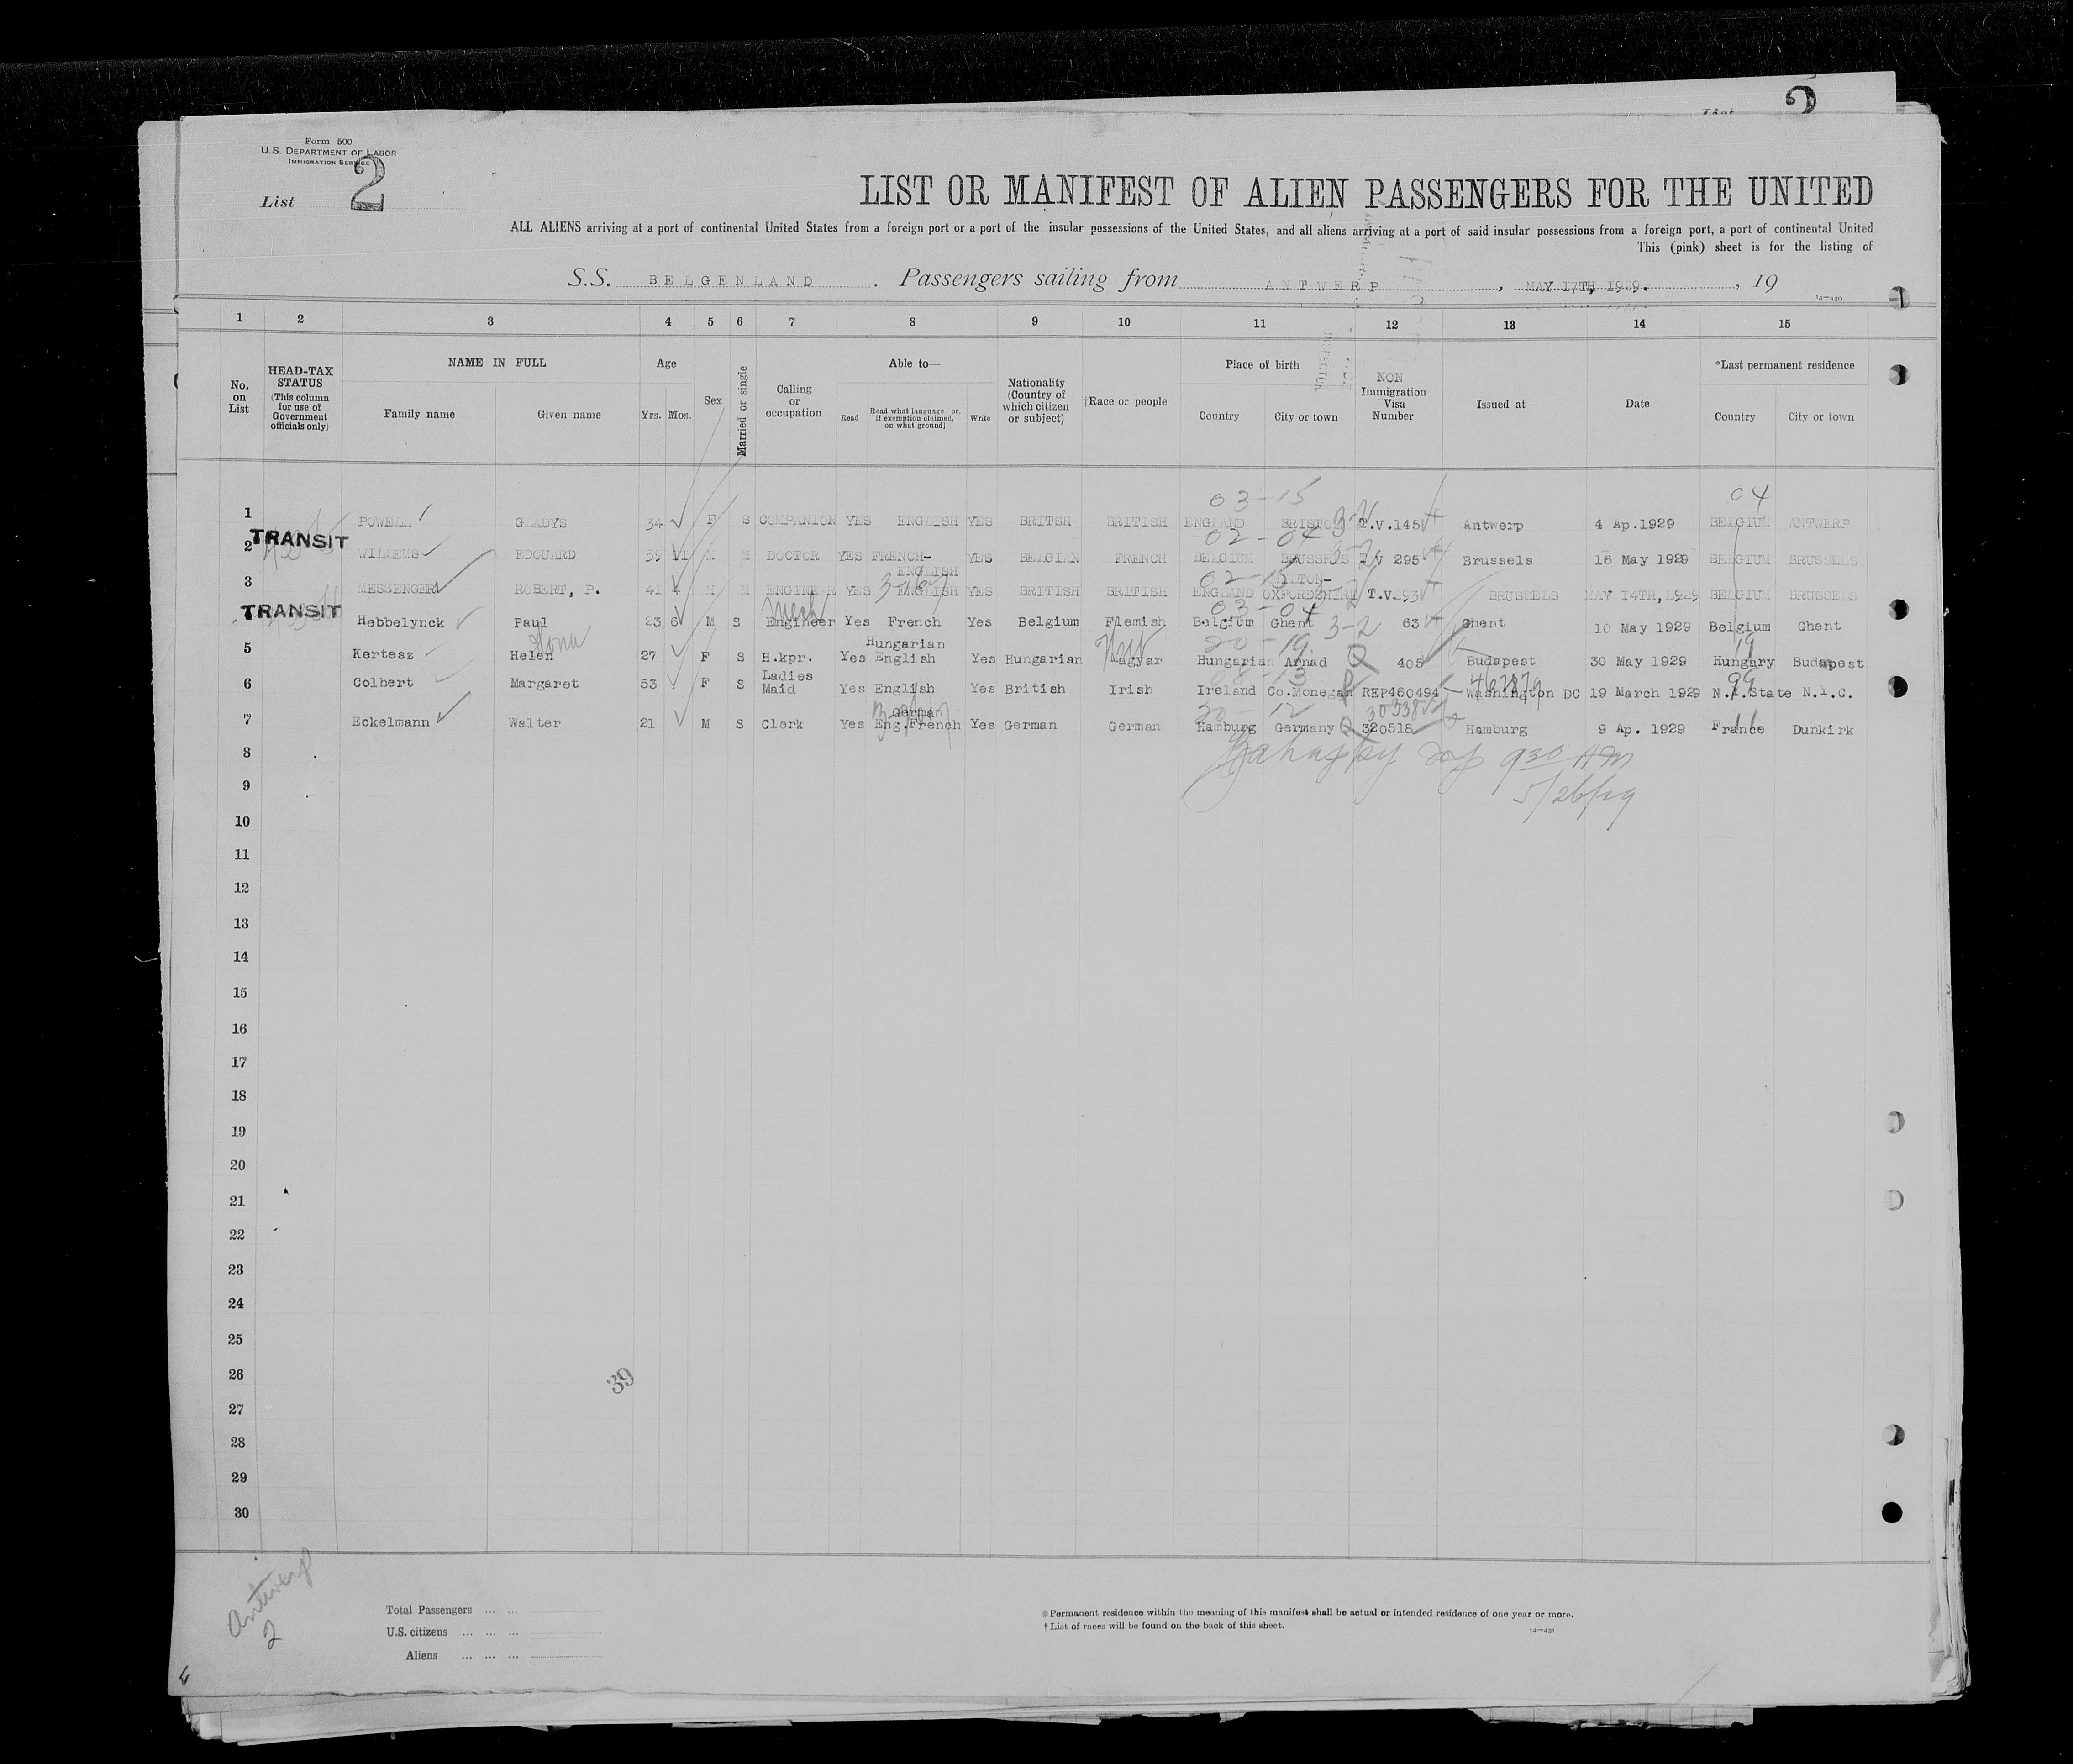 List 2
Form 500
U.S. DEPARTMENT OF LABOR
IMMIGRATION SERVICE
List 2
LIST OR MANIFEST OF ALIEN PASSENGERS FOR THE UNITED
ALL ALIENS arriving at a port of continental United States from a foreign port or a port of the insular possessions of the United States, and all aliens arriving at a port of said insular possessions from a foreign port, a port of continental United
This (pink) sheet is for the listing of
S.S. BELGENLAND . Passengers sailing from ANTWERP , MAY 17TH, 1929. , 19
14—430
1 2 3 4 5 6 7 8 9 10 11 12 13 14 15
No. on List
HEAD-TAX STATUS (This column for use of Government officials only)
NAME IN FULL
Family name Given name
Age
Yrs. Mos.
Sex
Married or single
Calling or occupation
Able to—
Read Read what language or, if exemption claimed, on what ground Write
Nationality (Country of which citizen or subject)
†Race or people
Place of birth
Country City or town
NON Immigration Visa Number
Issued at—
Date
*Last permanent residence
Country City or town
03-15 04
1 POWELL GLADYS 34 F S COMPANION YES ENGLISH YES BRITSH BRITISH ENGLAND BRISTOL 3-2 T.V.145 Antwerp 4 Ap.1929 BELGIUM ANTWERP
TRANSIT
02-04
2 WILLEMS EDOUARD 59 11 M M DOCTOR YES FRENCH-ENGLISH YES BELGIAN FRENCH BELGIUM BRUSSELS T V 295 Brussels 16 May 1929 BELGIUM BRUSSELS
02-15
3 MESSENGER ROBERT, P. 41 4 M M ENGINEER YES ENGLISH YES BRITISH BRITISH ENGLAND OXFORDSHIRE T.V.293 BRUSSELS MAY 14TH, 1929 BELGIUM BRUSSELS
TRANSIT
Mech 03-04
4 Hebbelynck Paul 23 6 M S Engineer Yes French Yes Belgium Flemish Belgium Ghent 3-2 63 Ghent 10 May 1929 Belgium Ghent
Ilona Hungarian 20-19 19
5 Kertesz Helen 27 F S H.kpr. Yes English Yes Hungarian Magyar Hungarian Arnad Q 405 Budapest 30 May 1929 Hungary Budapest
08-13 99
6 Colbert Margaret 53 F S Ladies Maid Yes English Yes British Irish Ireland Co.Monegan REP460494 Washington DC 19 March 1929 N.Y.State N.Y.C.
German 20-12
7 Eckelmann Walter 21 M S Clerk Yes Eng.French Yes German German Hamburg Germany Q 320518 Hamburg 9 Ap. 1929 France Dunkirk
8
930 AM
9
5/26/29
10
11
12
13
14
15
16
17
18
19
20
21
22
23
24
25
26
39
27
28
29
30
Antwerp
2
Total Passengers ... ...
U.S. citizens ... ... ...
Aliens ... ... ...
* Permanent residence within the meaning of this manifest shall be actual or intended residence of one year or more.
† List of races will be found on the back of this sheet.
14—431